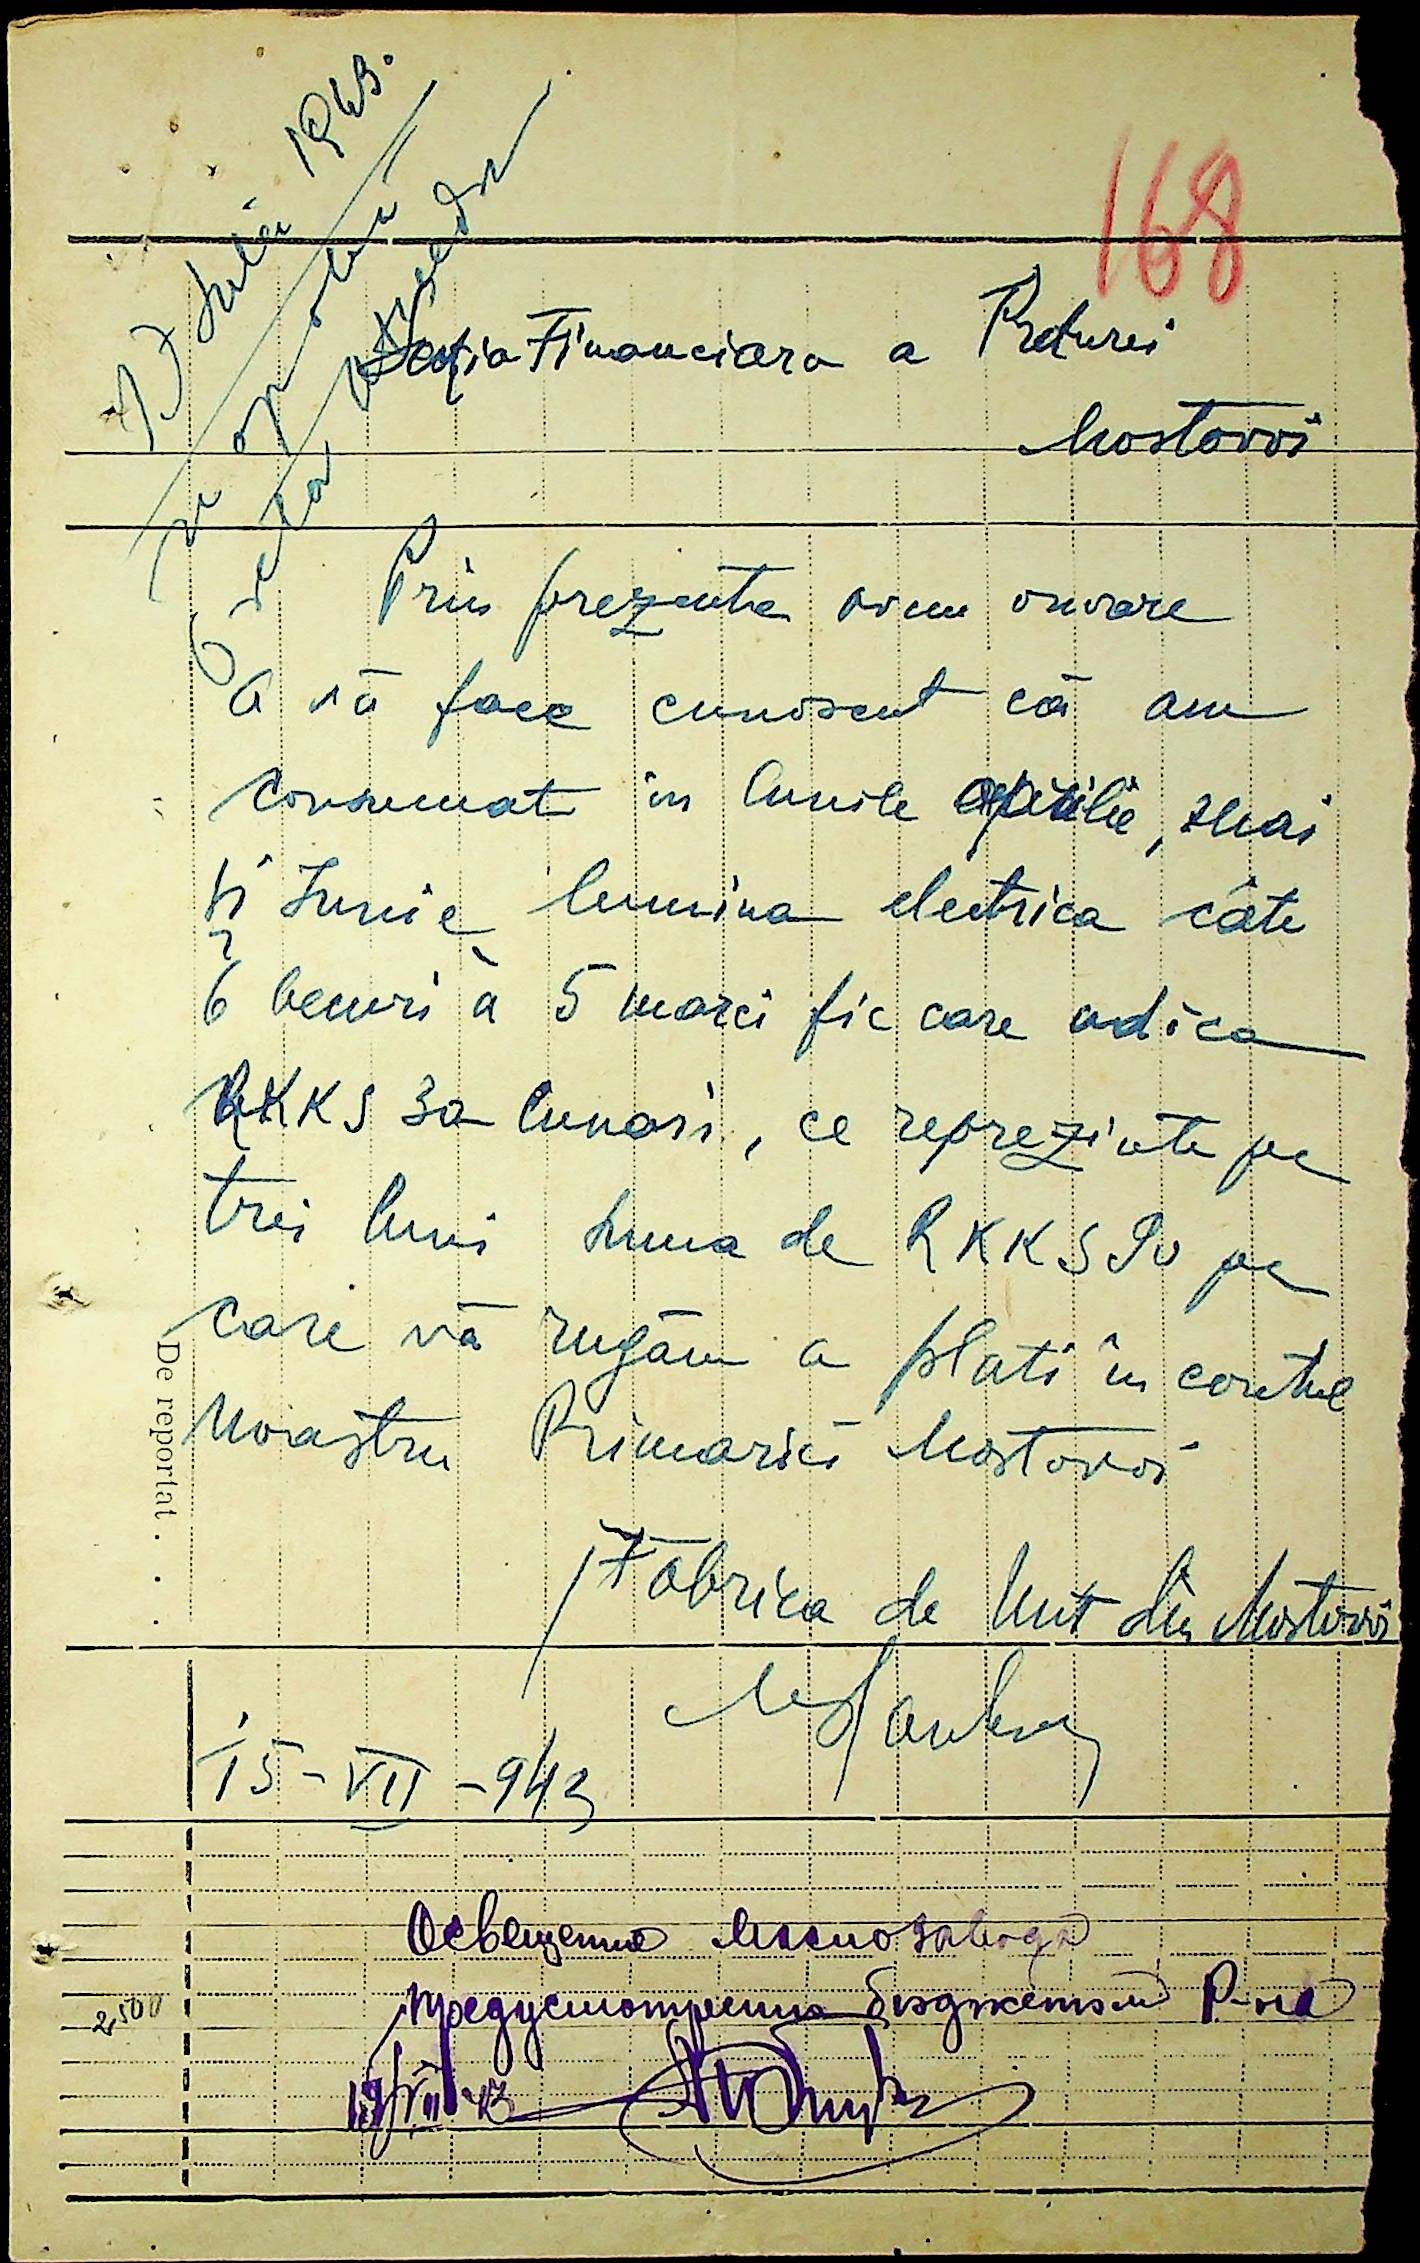 168
17 Iulie 1943.
Secția Financiara a Preturei
Mostovoi
Prin prezenta avem onoare
a vă face cunoscut că am
consumat în lunile Aprilie, Mai
și Iunie lumina electrica câte
6 becuri à 5 marci fie care adica
RKKS 30 lunari, ce reprezinta pe
trei luni suma de RKKS 90 pe
care vă rugăm a plati în contul
noastru Primariei Mostovoi
Fabrica de Unt din Mostovoi
15-VII-943
De reportat . . .
Освещение Маслозавода
предусмотрено бюджетом Р-на
2500
19/VII 43